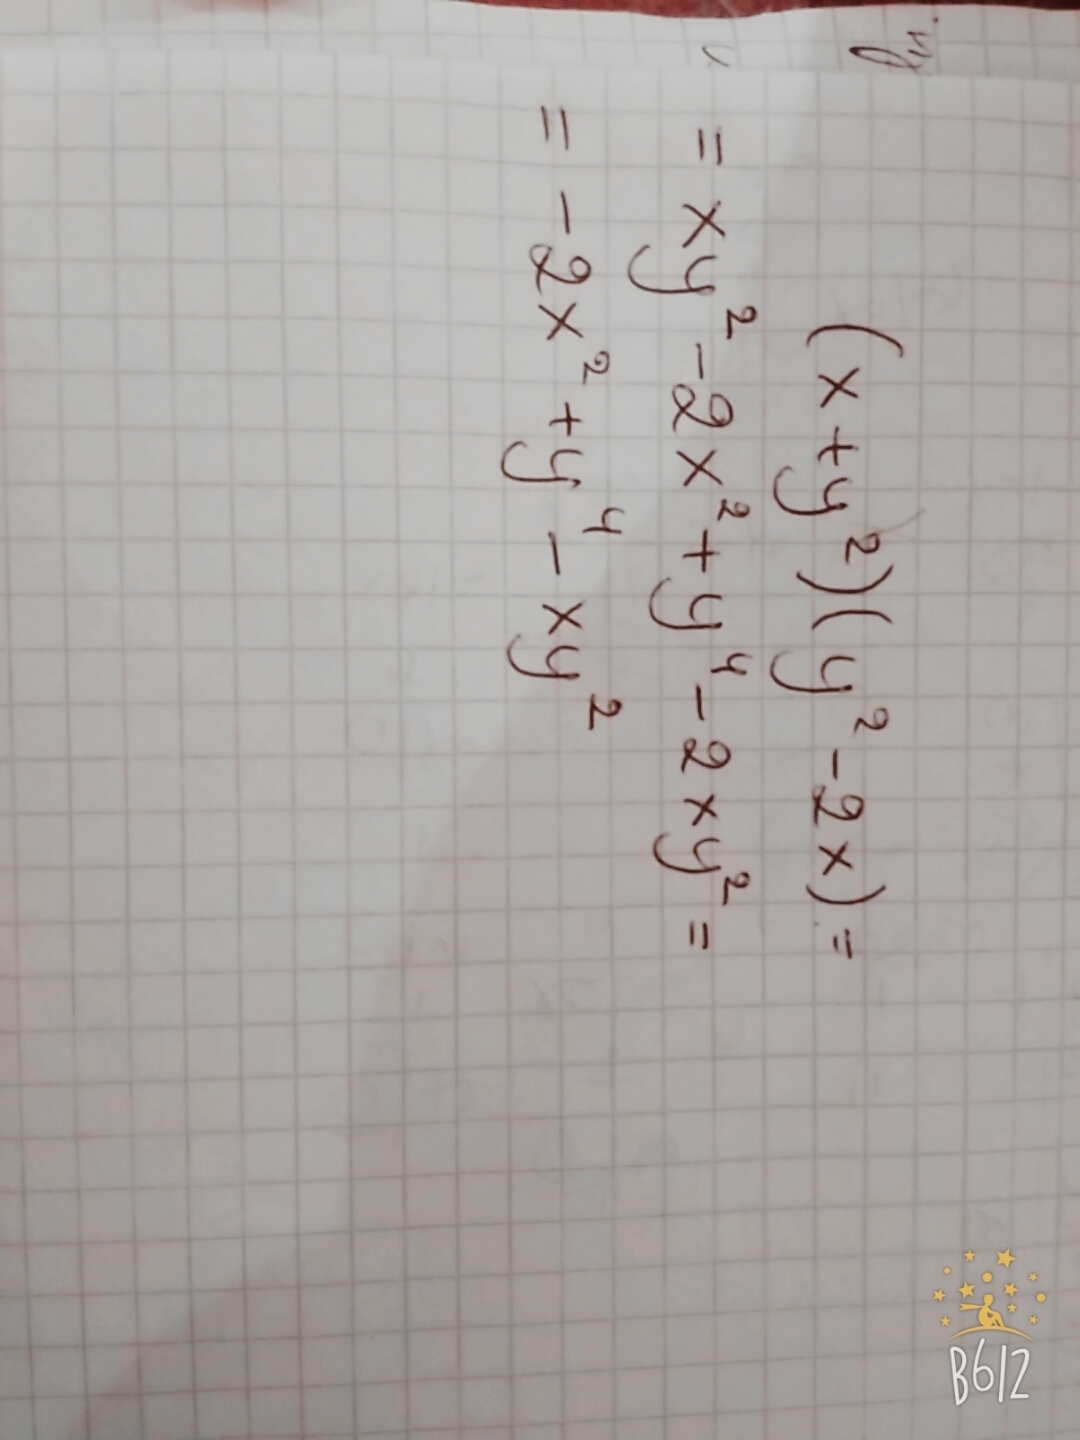 (x+y²)(y²-2x)=
=xy²-2x²+y⁴-2xy²=
=-2x²+y⁴-xy²
B612